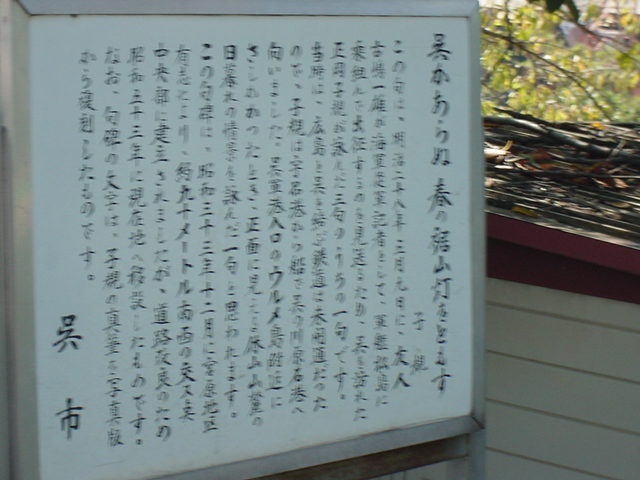 呉かあらぬ春の裾山灯をともす
子規
この句は、明治二十八年三月九日に、友人
古島一雄が海軍従軍記者として、軍艦松島に
乗組んで出征するのを見送るため、呉を訪れた
正岡子規が詠んだ三句のうちの一句です。
当時は、広島と呉を結ぶ鉄道は未開通だった
ので、子規は宇品港から船で呉の川原石港へ
向いました。呉軍港入口のウルメ島附近に
さしかかったとき、正面に見える休山山麓の
日暮れの情景を詠んだ一句と思われます。
この句碑は、昭和三十三年十二月に宮原地区
有志により、約九十メートル南西の交叉点
中央部に建立されましたが、道路改良のため
昭和五十三年に現在地へ移設したものです。
なお、句碑の文字は、子規の真筆を写真版
から復刻したものです。
呉市